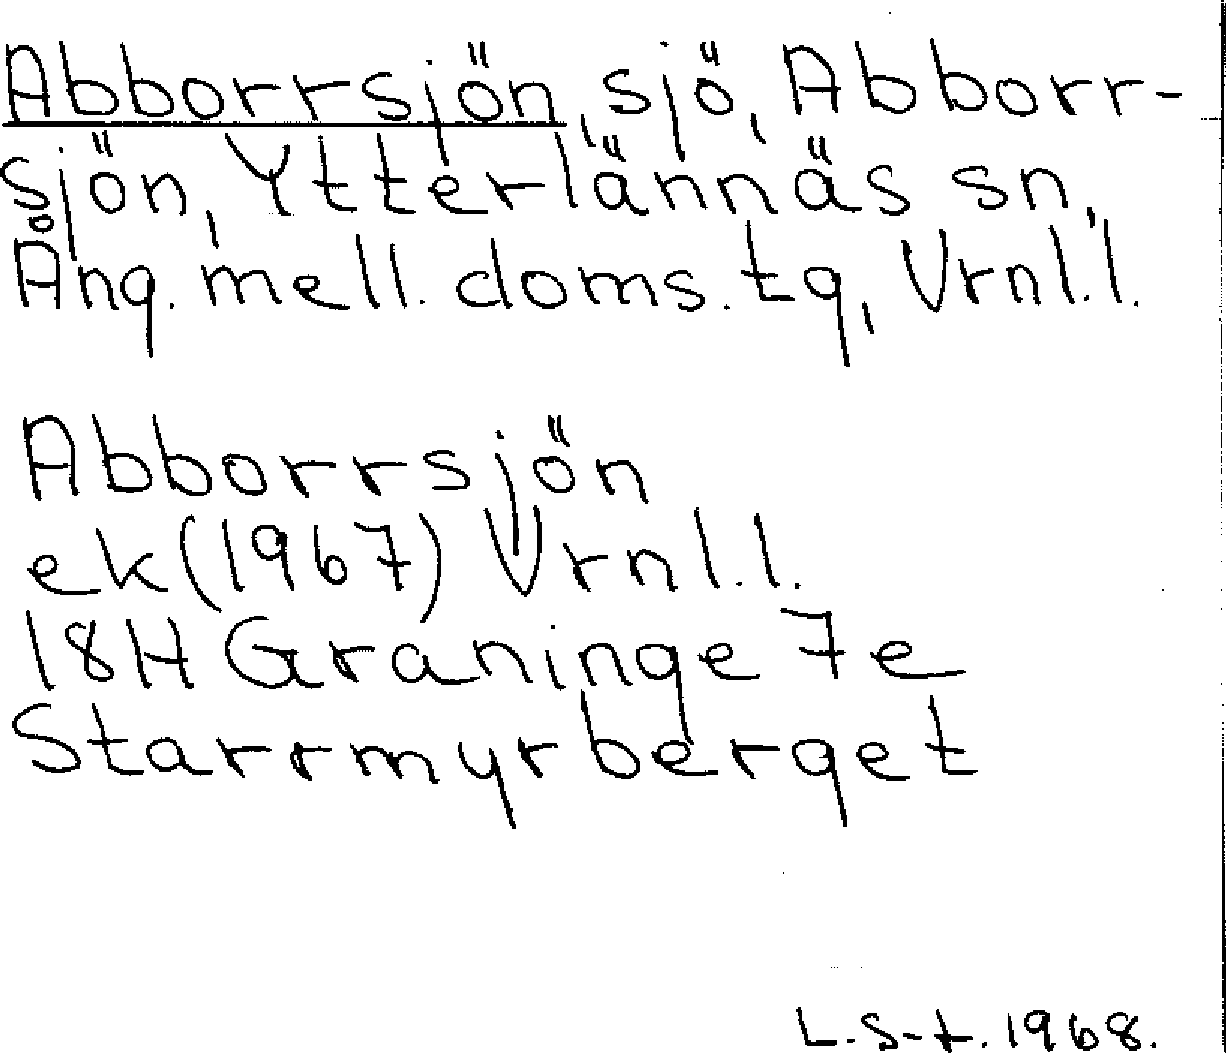 Abborrsjön, sjö, Abborr-
sjön, Ytterlännäs sn,
Ång. mell. doms. tg, Vrnl.l.
Abborrsjön
ek (1967) Vrnl.l.
18H Graninge 7e
Starrmyrberget
L.S-t. 1968.